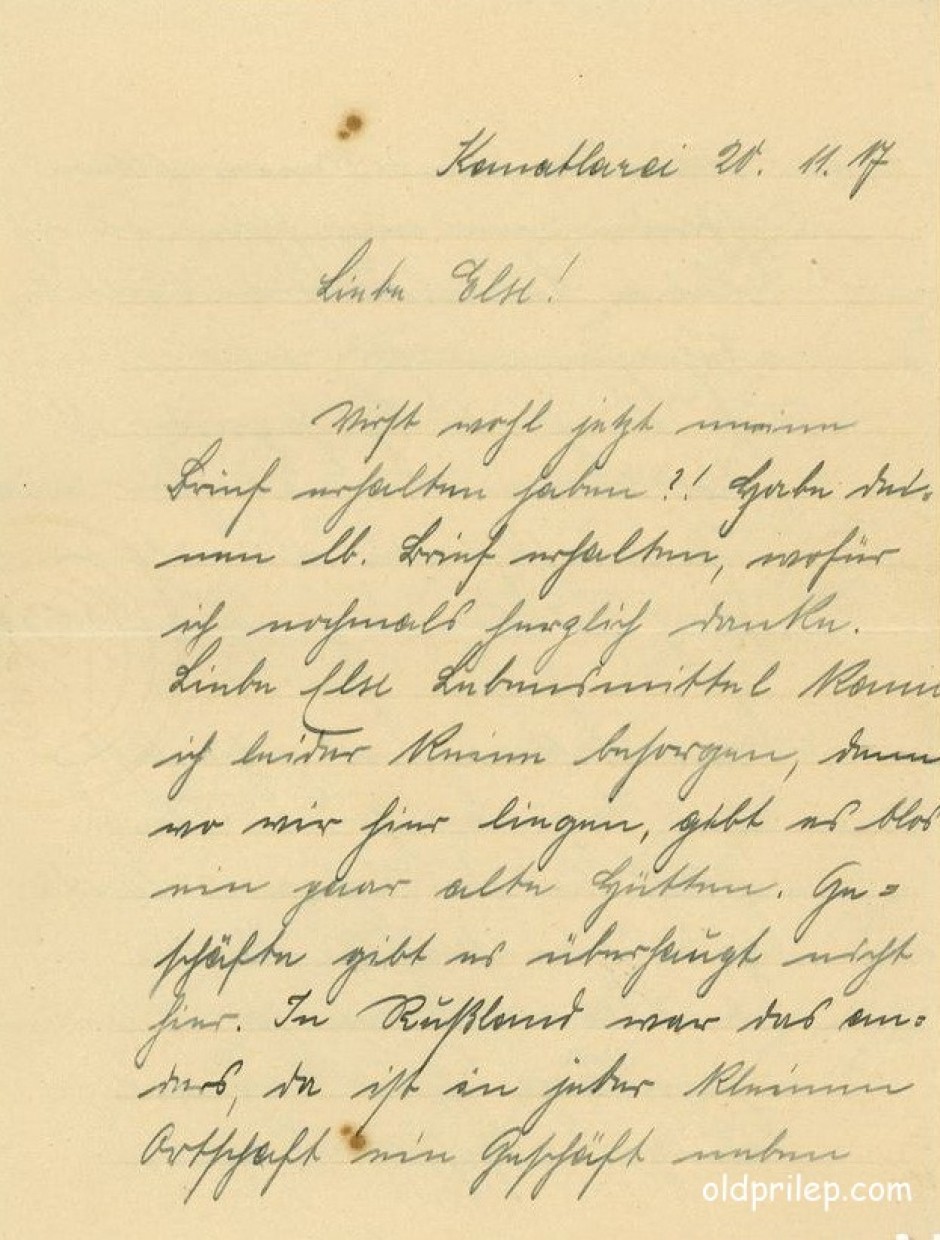 Komatlarei 20. 11. 17
Liebe Else!
Wirst wohl jetzt meinen
Brief erhalten haben?! Habe dei-
nen lb. Brief erhalten, wofür
ich nochmals herzlich danke.
Liebe Else Lebensmittel kann
ich leider keine besorgen, denn
wo wir hier liegen, gibt es blos
ein paar alte Hütten. Ge-
schäfte gibt es überhaupt nicht
hier. In Rußland war das an-
ders, da ist in jeder kleinen
Ortschaft ein Geschäft neben
oldprilep.com